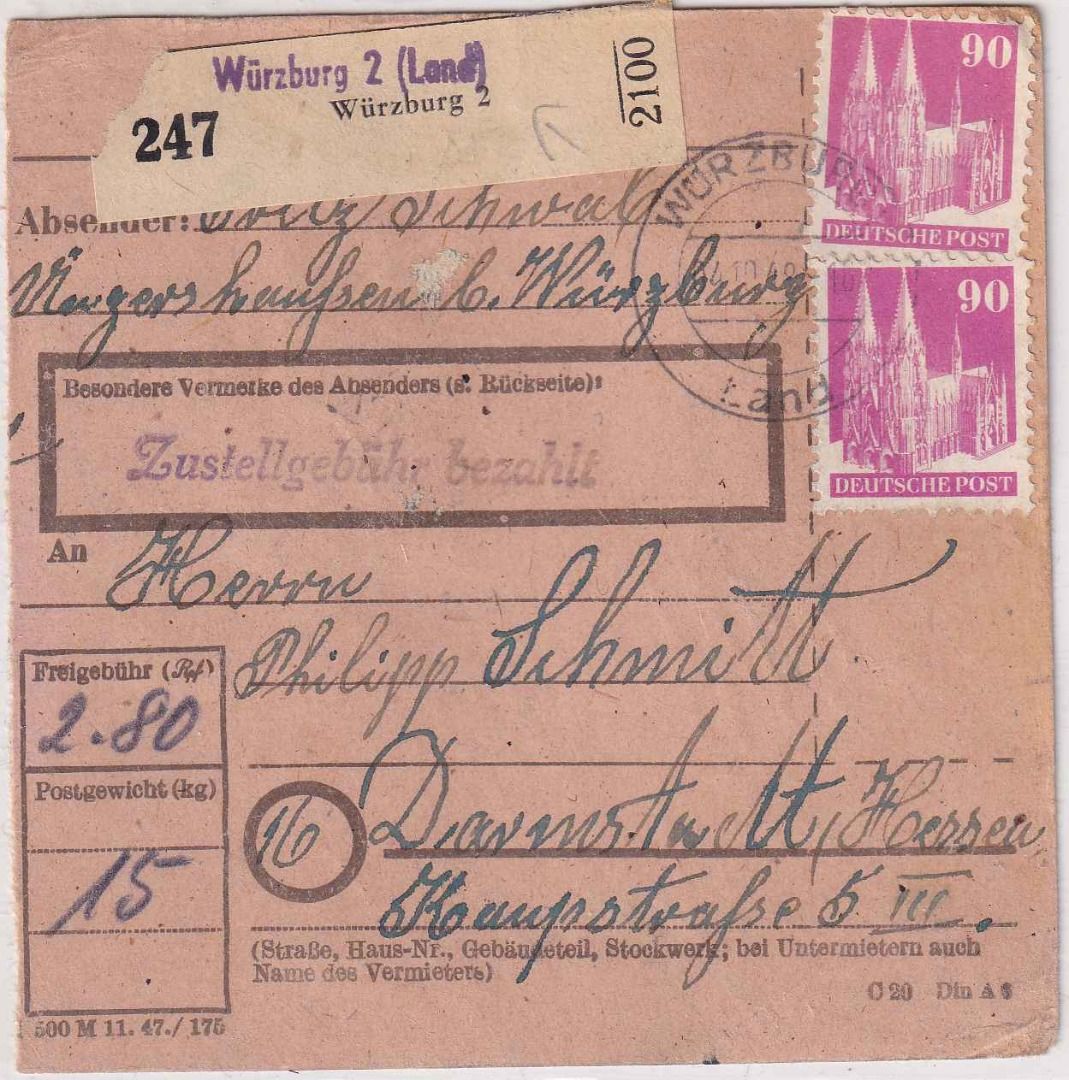 Würzburg 2 (Land)
Würzburg 2
247
2100
90
DEUTSCHE POST
90
DEUTSCHE POST
WÜRZBURG
10.49
Land
Absender: Fritz Schwab
Üngershaußen b. Würzburg
Besondere Vermerke des Absenders (s. Rückseite):
Zustellgebühr bezahlt
An Herrn
Philipp Schmitt
Freigebühr (Rpf)
2.80
Postgewicht (kg)
15
16
Darmstadt, Hessen
Haupstraße 5 III.
(Straße, Haus-Nr., Gebäudeteil, Stockwerk; bei Untermietern auch
Name des Vermieters)
C 20 Din A 6
500 M 11. 47. / 175